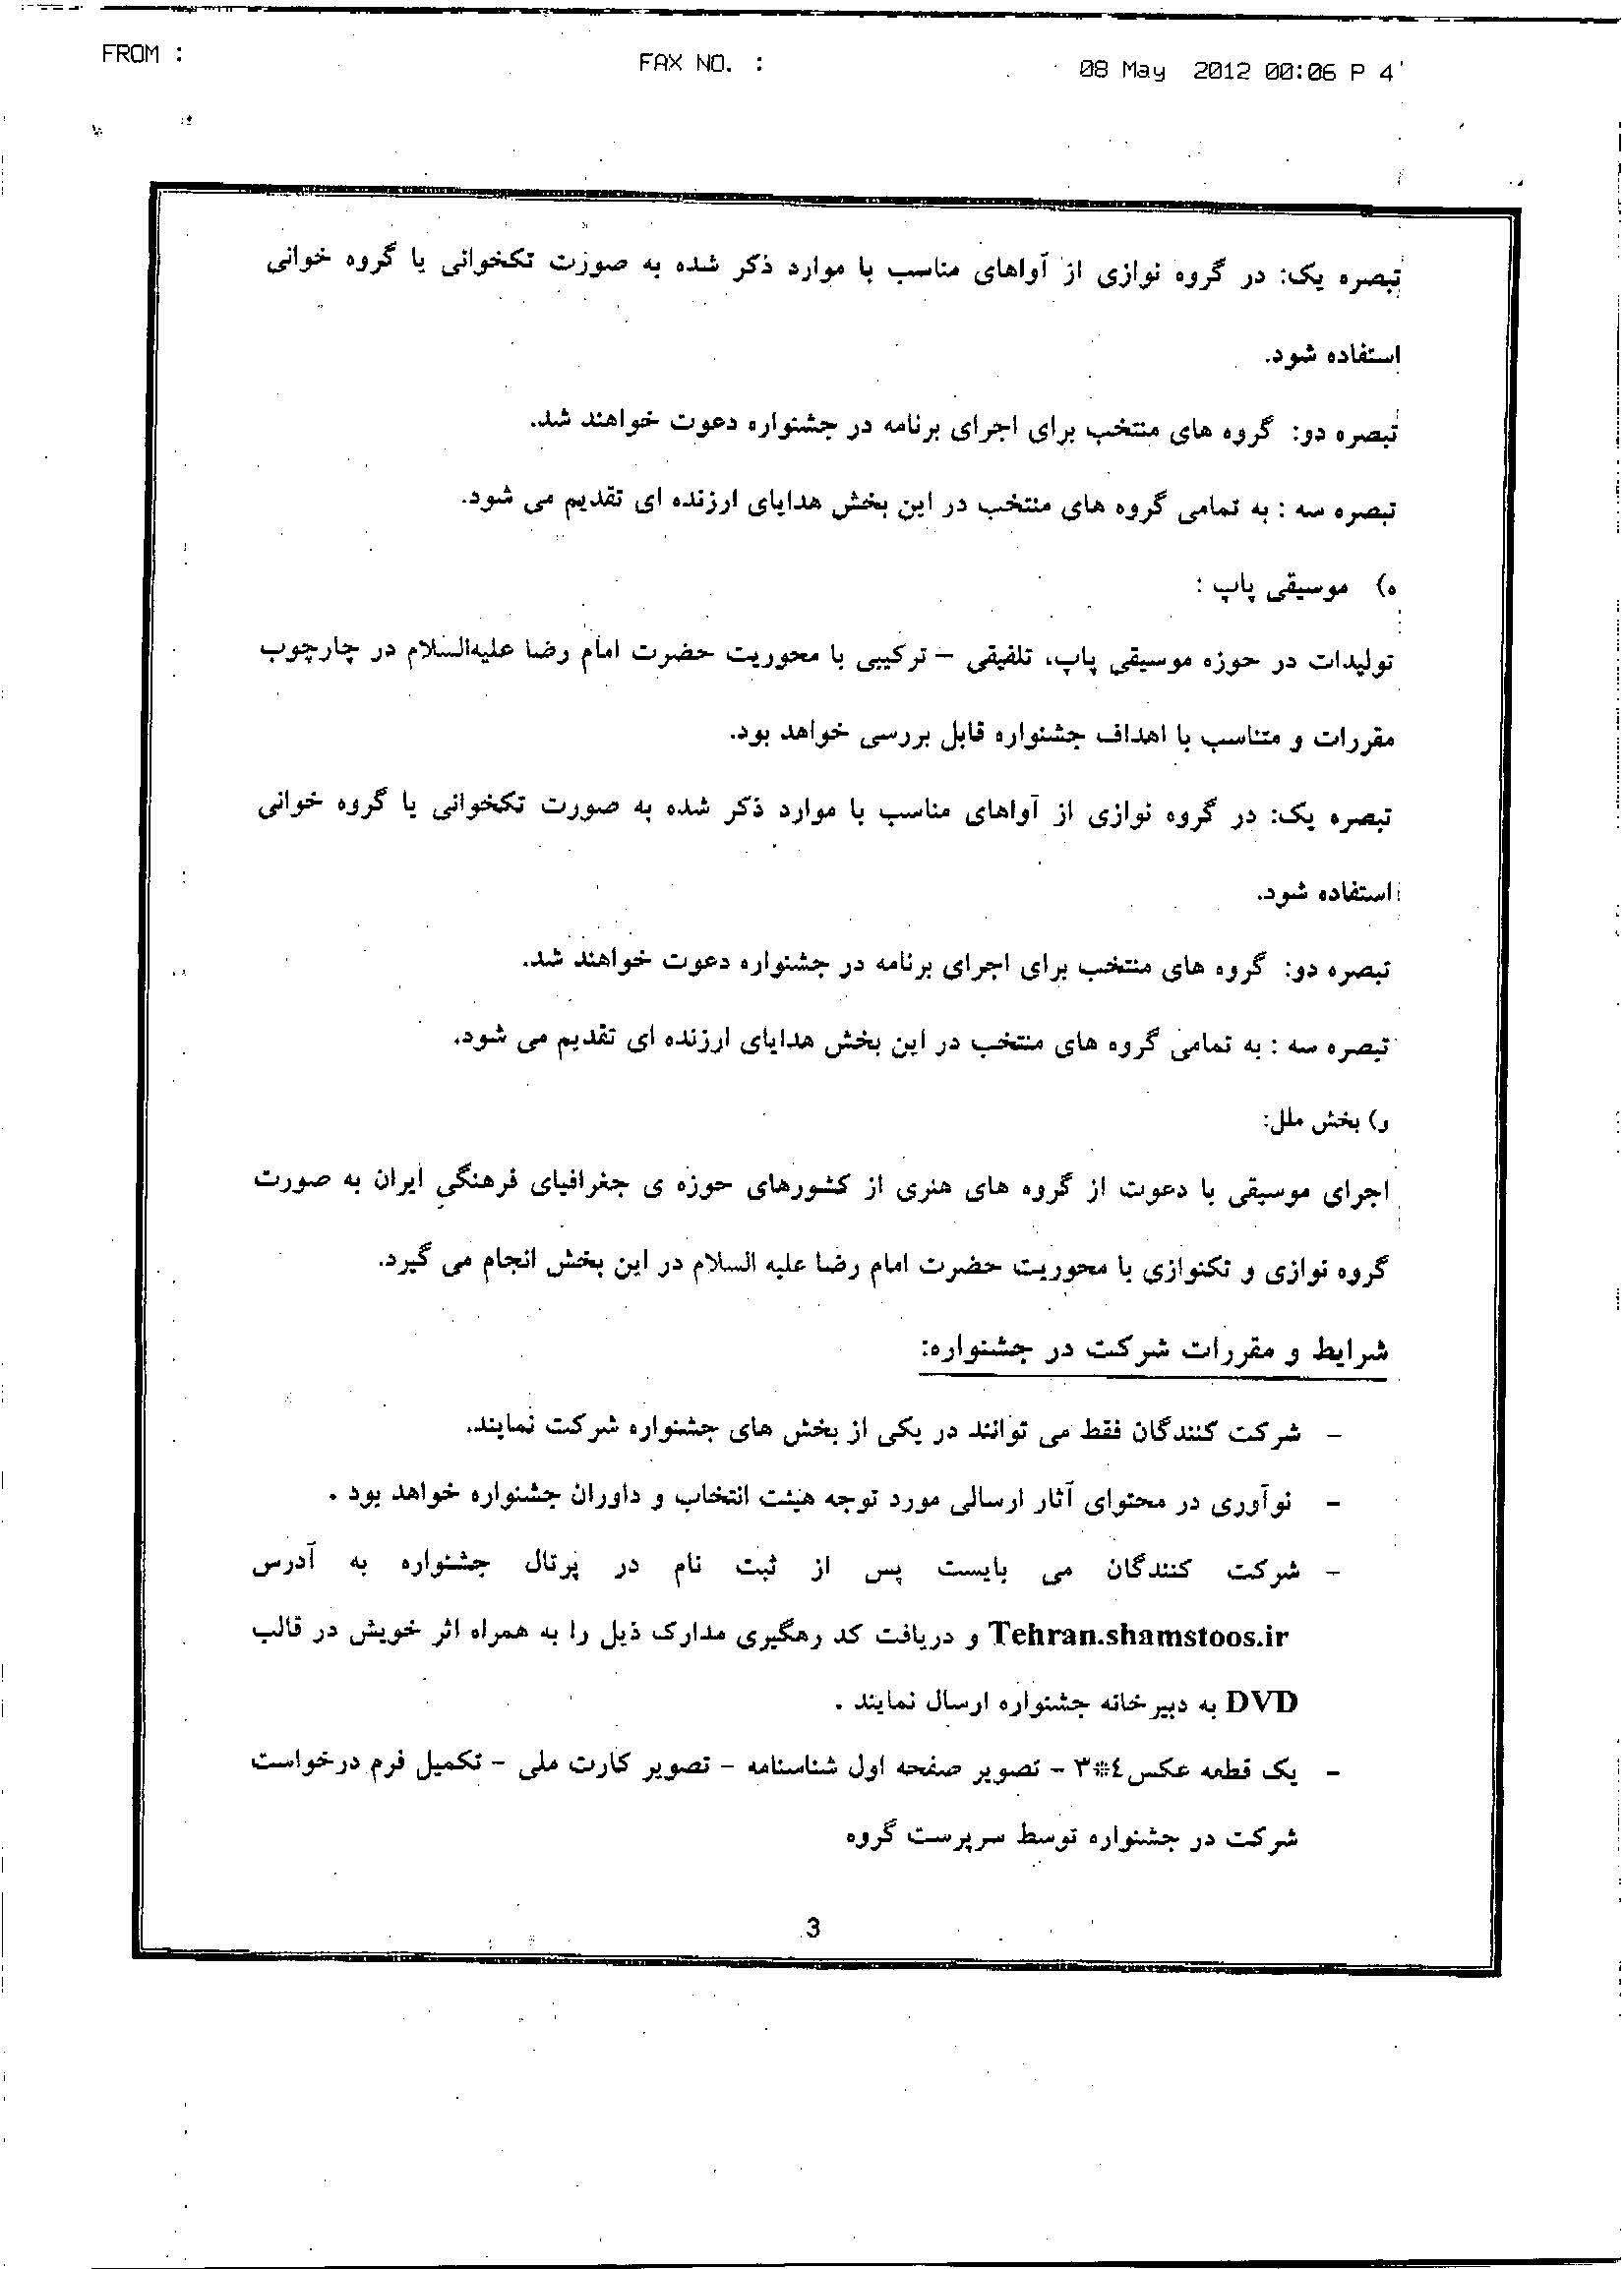 FROM :
FAX NO. :
08 May 2012 00:06 P 4
تبصره یک: در گروه نوازی از آواهای مناسب با موارد ذکر شده به صورت تکخوانی یا گروه خوانی
استفاده شود.
تبصره دو: گروه های منتخب برای اجرای برنامه در جشنواره دعوت خواهند شد.
تبصره سه : به تمامی گروه های منتخب در این بخش هدایای ارزنده ای تقدیم می شود.
ه) موسیقی پاپ :
تولیدات در حوزه موسیقی پاپ، تلفیقی – ترکیبی با محوریت حضرت امام رضا علیه‌السلام در چارچوب
مقررات و متناسب با اهداف جشنواره قابل بررسی خواهد بود.
تبصره یک: در گروه نوازی از آواهای مناسب با موارد ذکر شده به صورت تکخوانی یا گروه خوانی
استفاده شود.
تبصره دو: گروه های منتخب برای اجرای برنامه در جشنواره دعوت خواهند شد.
تبصره سه : به تمامی گروه های منتخب در این بخش هدایای ارزنده ای تقدیم می شود.
و) بخش ملل:
اجرای موسیقی با دعوت از گروه های هنری از کشورهای حوزه ی جغرافیای فرهنگی ایران به صورت
گروه نوازی و تکنوازی با محوریت حضرت امام رضا علیه السلام در این بخش انجام می گیرد.
شرایط و مقررات شرکت در جشنواره:
– شرکت کنندگان فقط می توانند در یکی از بخش های جشنواره شرکت نمایند.
– نوآوری در محتوای آثار ارسالی مورد توجه هیئت انتخاب و داوران جشنواره خواهد بود .
– شرکت کنندگان می بایست پس از ثبت نام در پرتال جشنواره به آدرس
Tehran.shamstoos.ir و دریافت کد رهگیری مدارک ذیل را به همراه اثر خویش در قالب
DVD به دبیرخانه جشنواره ارسال نمایند .
– یک قطعه عکس ٤*٣ – تصویر صفحه اول شناسنامه – تصویر کارت ملی – تکمیل فرم درخواست
شرکت در جشنواره توسط سرپرست گروه
3